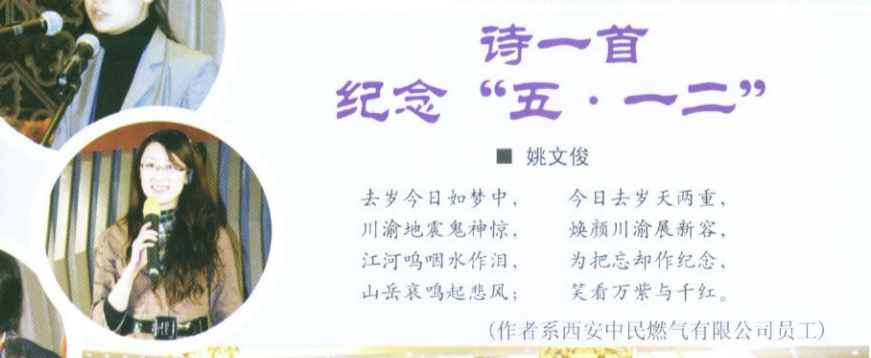 诗一首
纪念“五·一二”
■ 姚文俊
去岁今日如梦中，
川渝地震鬼神惊，
江河呜咽水作泪，
山岳哀鸣起悲风；
今日去岁天两重，
焕颜川渝展新容，
为把忘却作纪念，
笑看万紫与千红。
（作者系西安中民燃气有限公司员工）